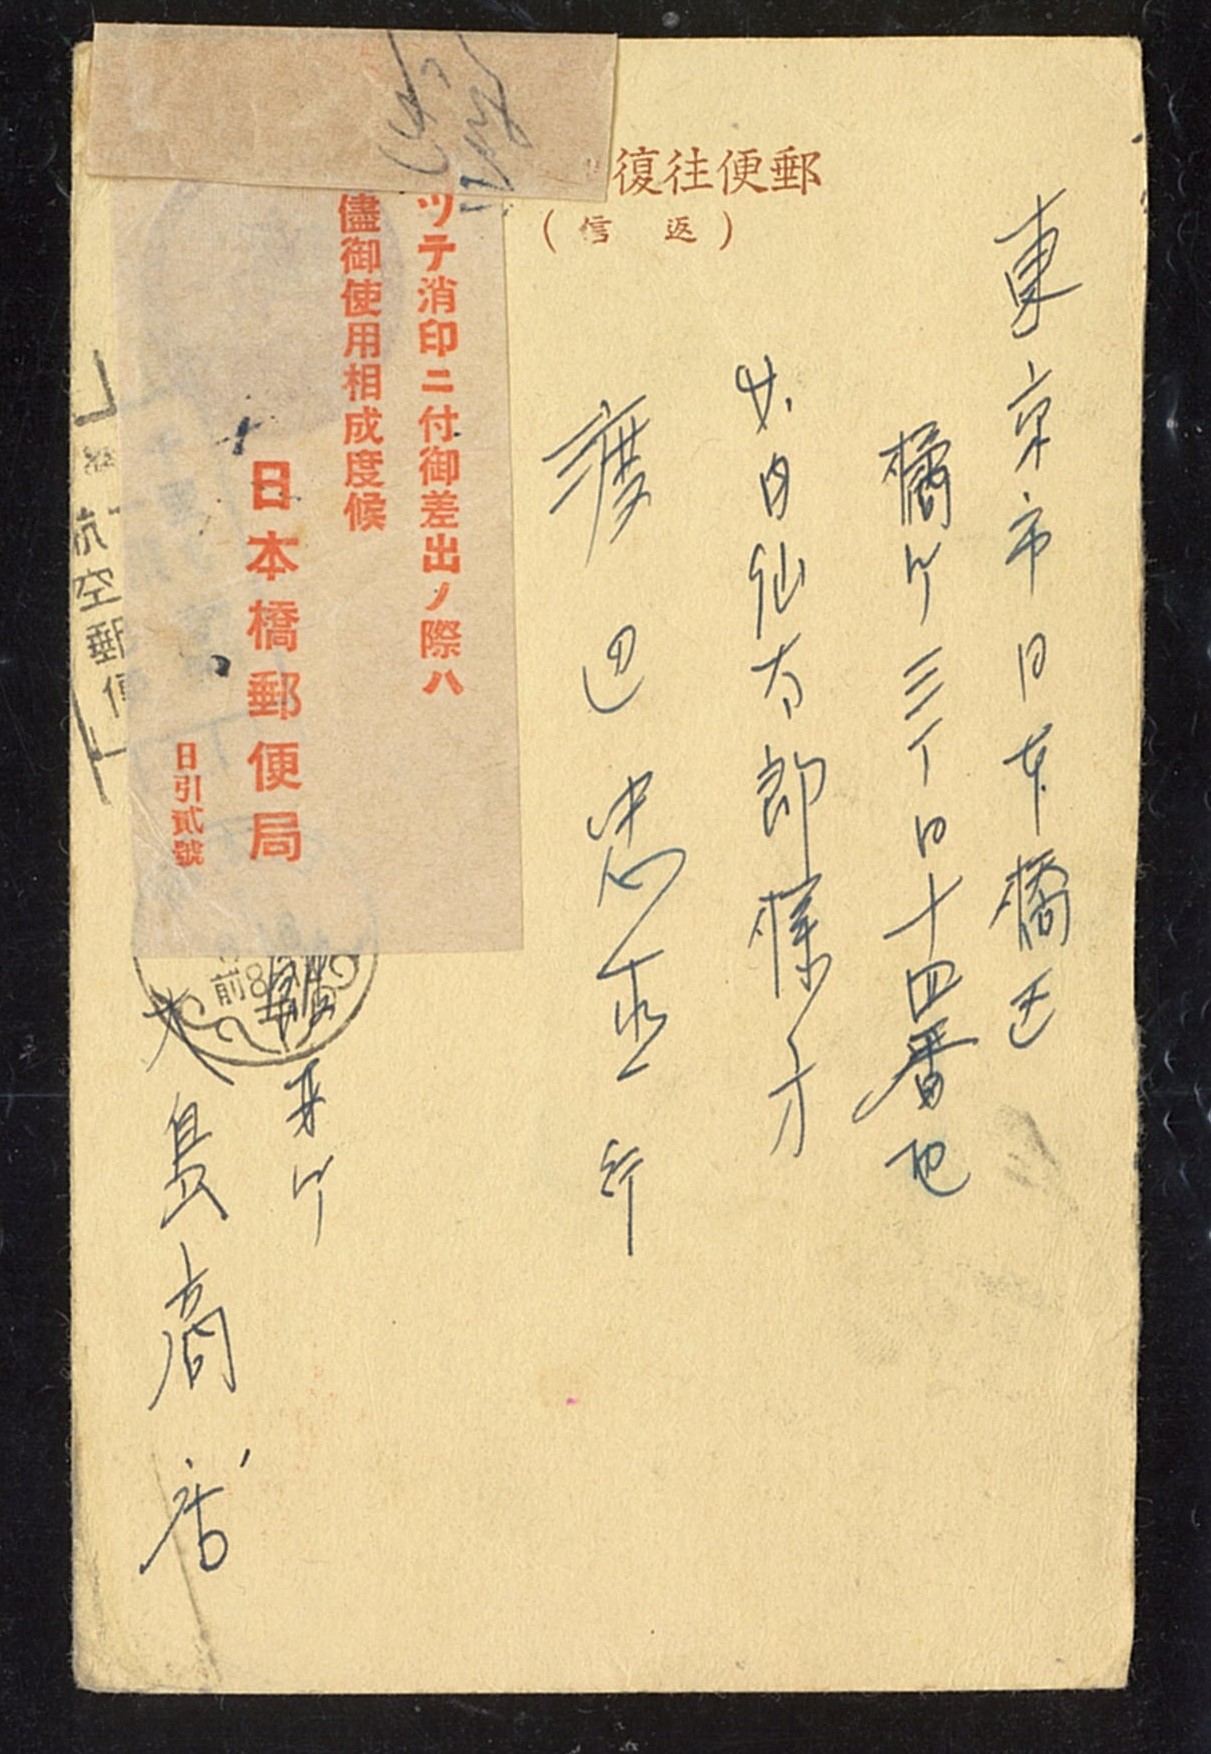 郵便往復
(返信)
東京市日本橋区
橘町三丁目十四番地
竹内仙太郎様方
渡辺忠
行
ツテ消印ニ付御差出ノ際ハ
儘御使用相成度候
日本橋郵便局
日引貳號
航空郵便
前8
大島商店